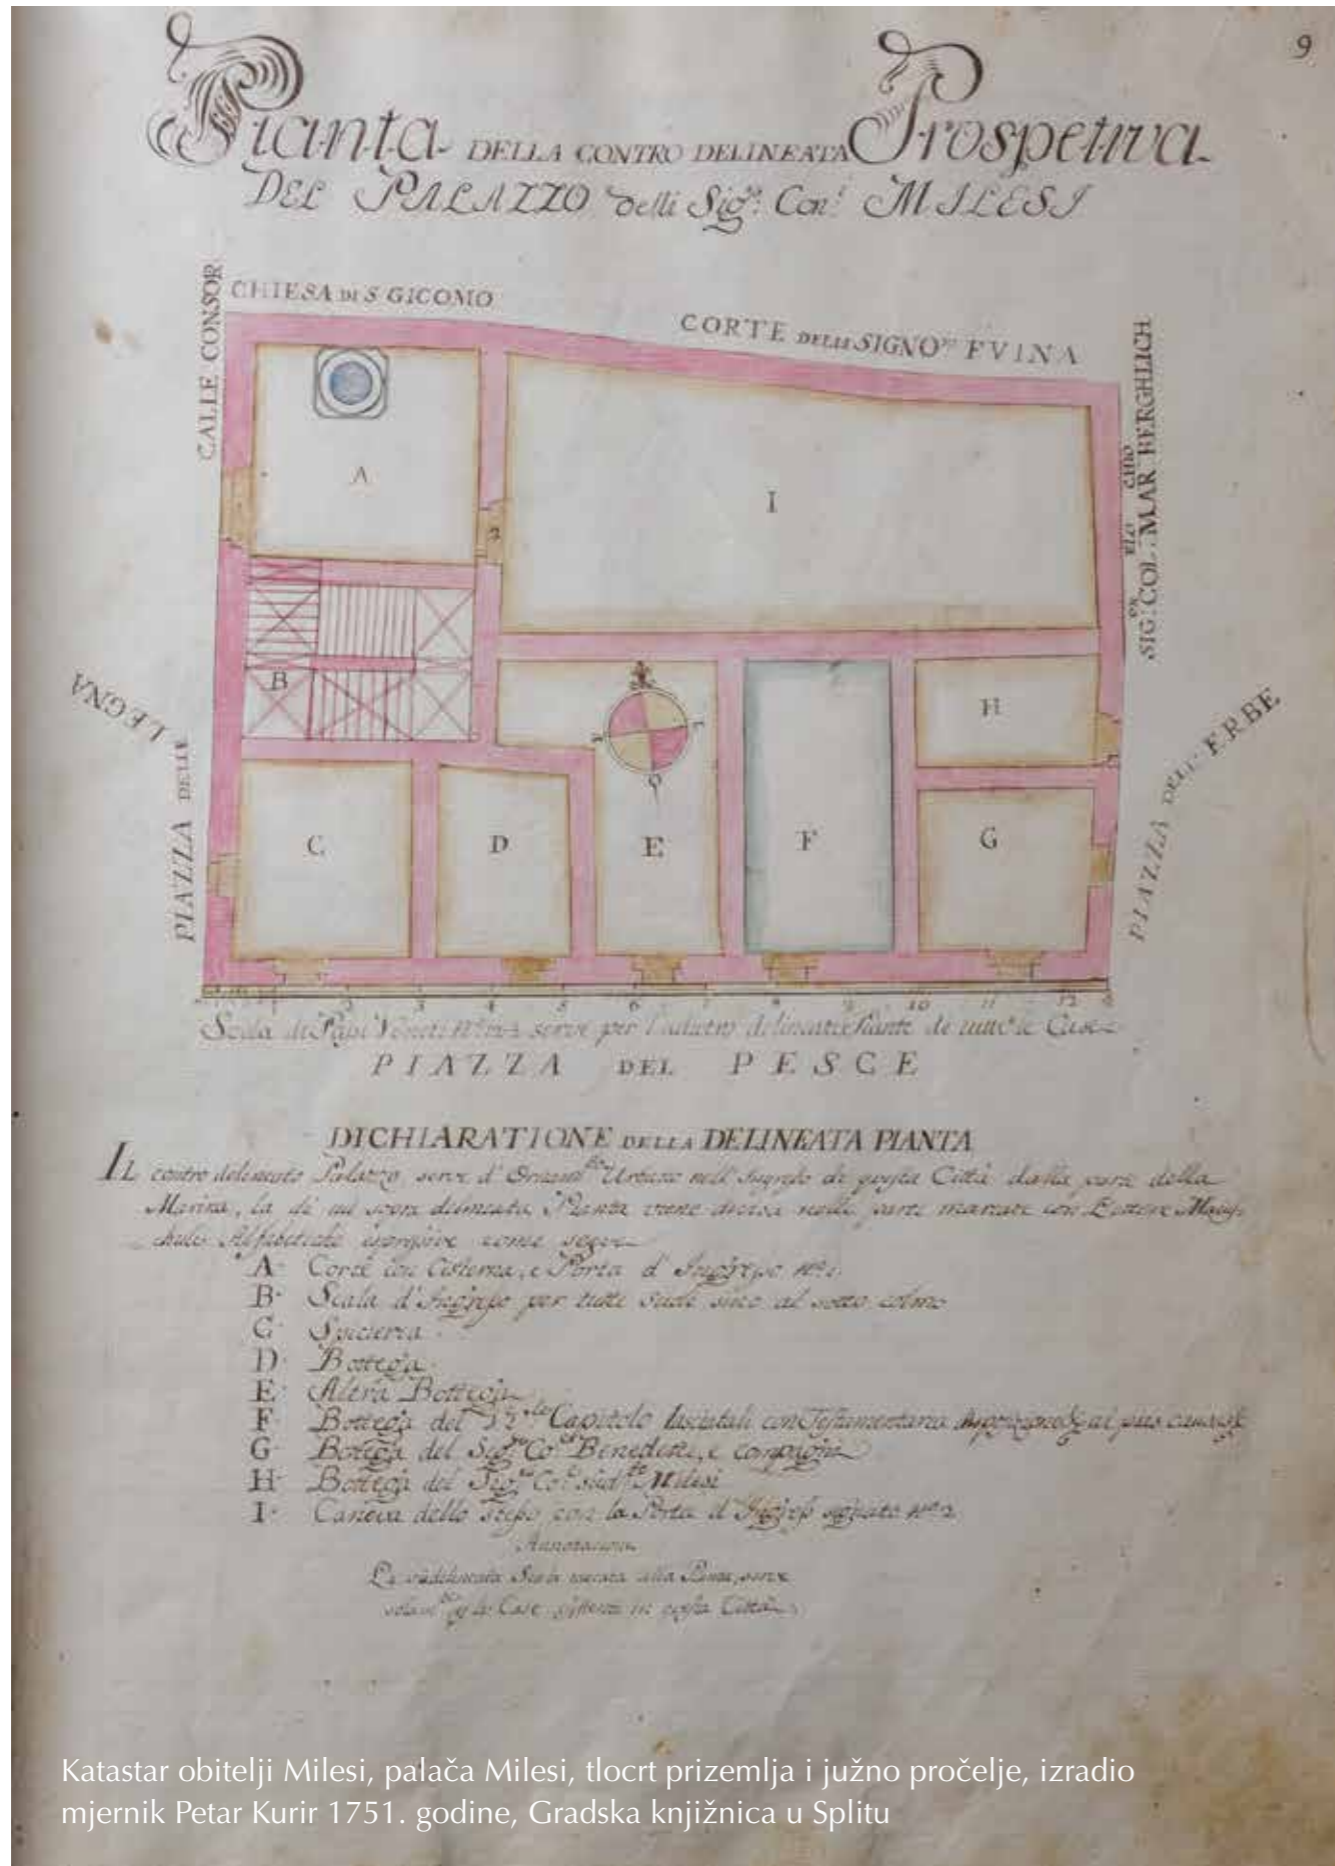 9
Pianta DELLA CONTRO DELINEATA Prospetiva
DEL PALAZZO delli Sig.ri Con.i MILESI
CALLE CONSOR
CHIESA DI S GICOMO
CORTE DELLI SIGNO.ri FVINA
SIG.or COL.ELO MAR.CHIO BERGHLICH
A
I
2
B
H
C
D
E
F
G
O
PIAZZA DELLE LEGNA
PIAZZA DELL' ERBE
1 2 3 4 5 6 7 8 9 10 11 12
Scala di Passi Veneti serve per l'adietro delineate Piante de tutte le Case
PIAZZA DEL PESCE
DICHIARATIONE DELLA DELINEATA PIANTA
IL contro delineato Palazzo serve d' Urbano nell' Ingresso di questa Città dalla parte della
Marina, la di cui sopra delineata Pianta viene divisa nelle parte marcate con Lettere Maiu
Alfabetiche come segue
A Corte con Cisterna, e Porta d' Ingresso
B Scala d' Ingresso per tutti sino al sotto colmo
C Spicieria
D Bottega
E Altra Bottega
F Bottega del Capitolo con Testamentaria
G Bottega del Sig. Co. Benedetti, e compagni
H Bottega del Sig. Co. Milesi
I Caneva dello stesso con la Porta d' Ingresso segnato No 2
Annotazione
La Scala alla serve
le Case in questa Città
Katastar obitelji Milesi, palača Milesi, tlocrt prizemlja i južno pročelje, izradio
mjernik Petar Kurir 1751. godine, Gradska knjižnica u Splitu